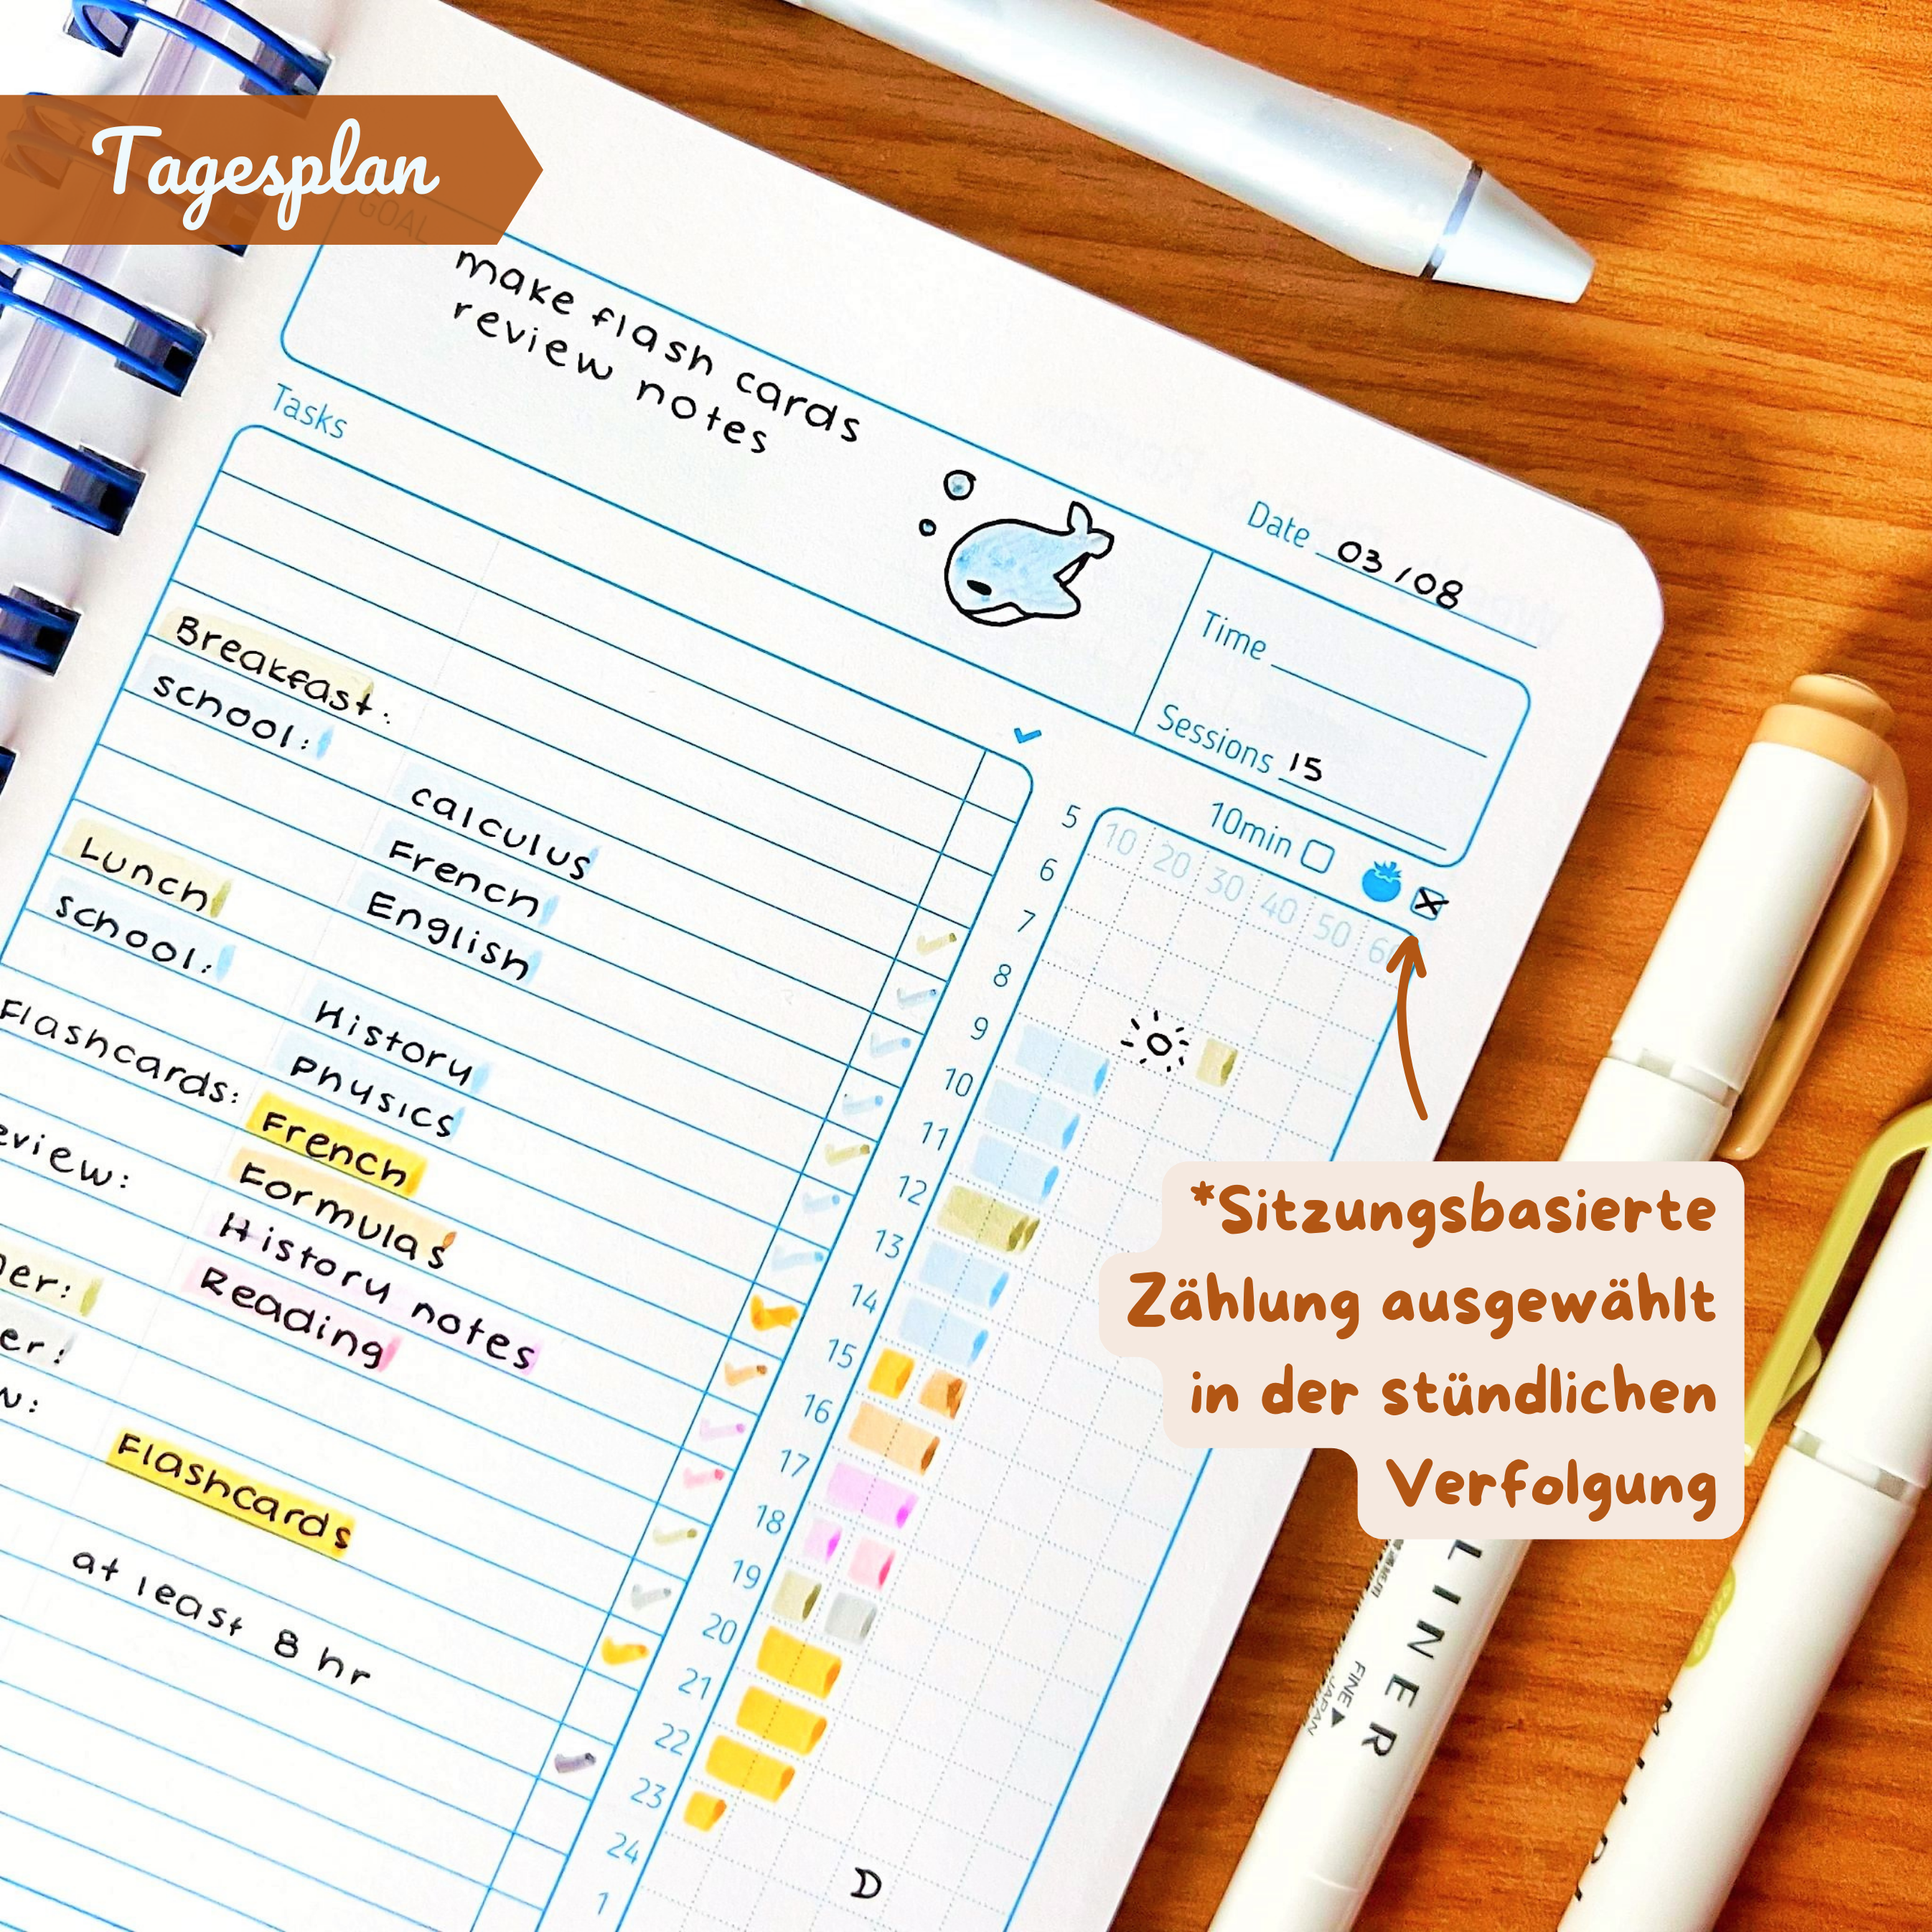 Tagesplan
GOAL
make flash cards
review notes
Date 03/08
Time
Sessions 15
10min
Tasks
Breakfast:
school: calculus
French
English
Lunch
school: History
Physics
Flashcards: French
Formulas
History notes
Reading
Flashcards
at least 8 hr
10 20 30 40 50 60
5
6
7
8
9
10
11
12
13
14
15
16
17
18
19
20
21
22
23
24
1
*Sitzungsbasierte
Zählung ausgewählt
in der stündlichen
Verfolgung
LINER
FINE
JAPAN